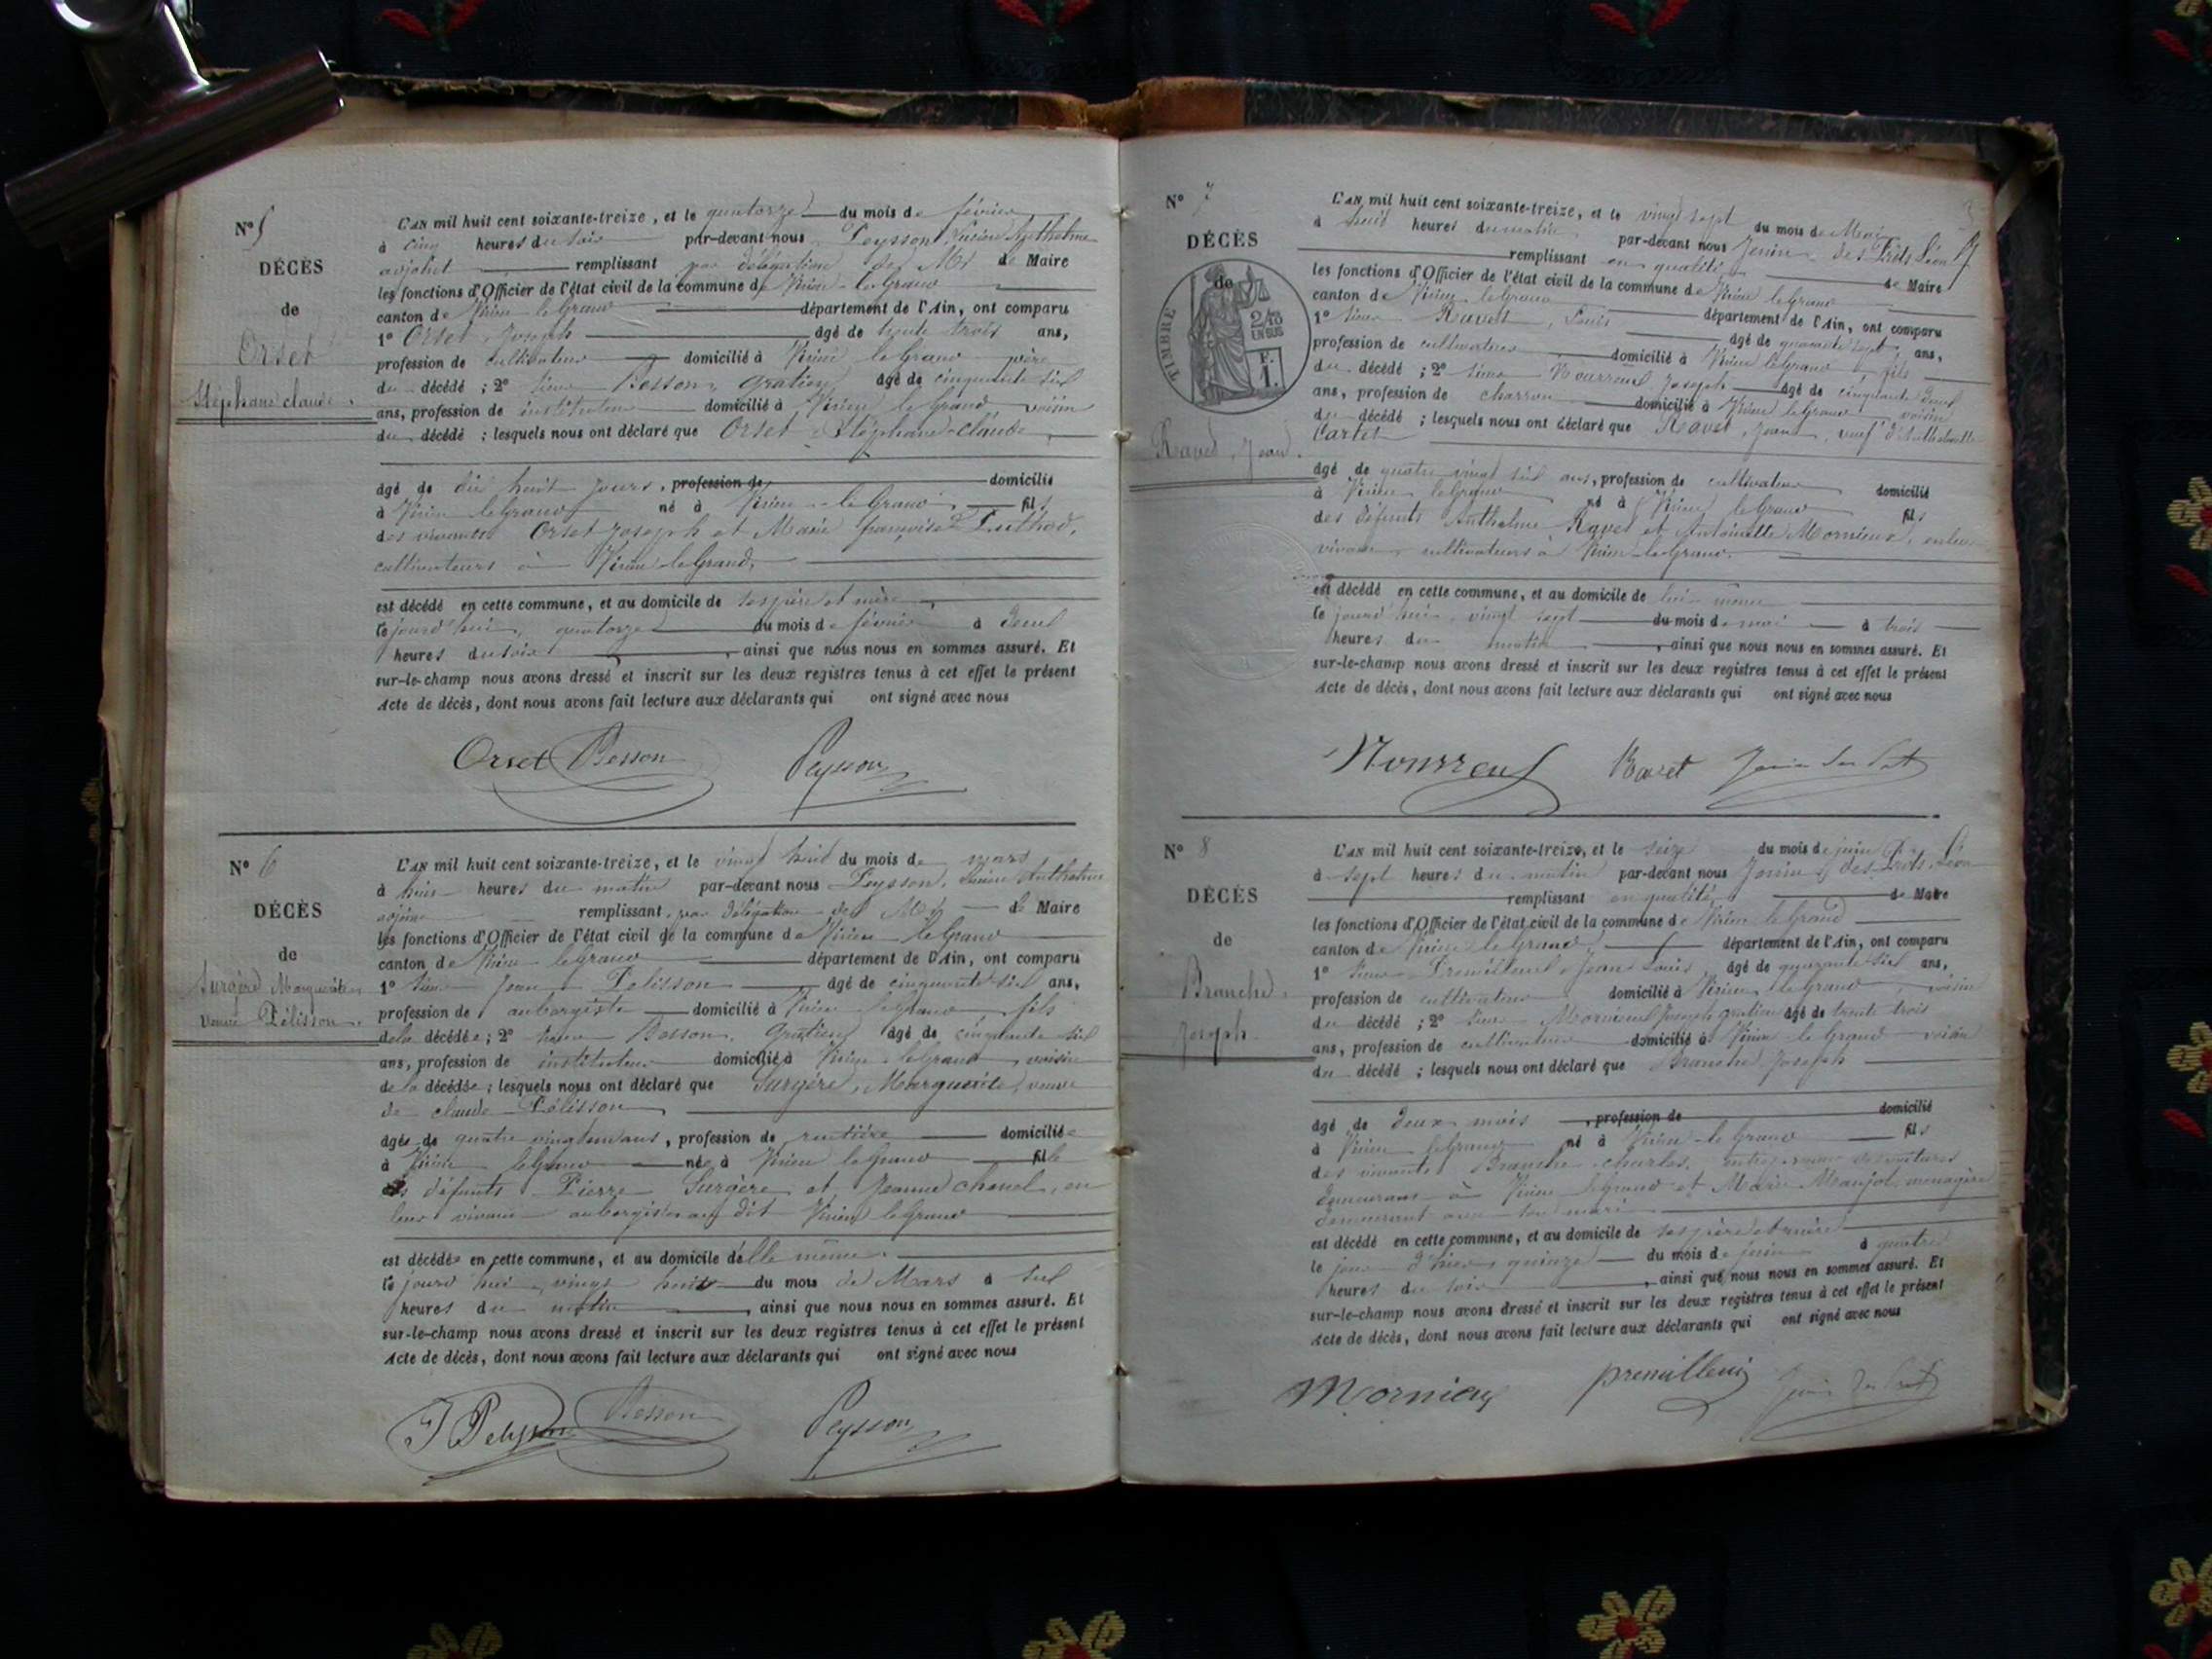 N° 5
DÉCÈS
de
Orset
Stéphane claude.
L'AN mil huit cent soixante-treize, et le quatorze du mois de février
à cinq heures du soir par-devant nous Peysson, Lucien Anthelme
adjoint remplissant par délégation de Mr le Maire
les fonctions d'Officier de l'état civil de la commune de Virieu-le-Grand
canton de Virieu le Grand département de l'Ain, ont comparu
1° Orset, Joseph âgé de trente trois ans,
profession de cultivateur domicilié à Virieu le Grand père
du décédé ; 2° sieur Besson, Gratien âgé de cinquante six
ans, profession de instituteur domicilié à Virieu le Grand, voisin
du décédé ; lesquels nous ont déclaré que Orset Stéphane-claude
âgé de dix huit jours, profession de domicilié
à Virieu le Grand né à Virieu-le-Grand fils
des vivants Orset Joseph et Marie françoise Luthod,
cultivateurs à Virieu le Grand,
est décédé en cette commune, et au domicile de ses père et mère,
le jourd'hui, quatorze du mois de février à deux
heures du soir, ainsi que nous nous en sommes assuré. Et
sur-le-champ nous avons dressé et inscrit sur les deux registres tenus à cet effet le présent
Acte de décès, dont nous avons fait lecture aux déclarants qui ont signé avec nous
Orset Besson Peysson
N° 6
DÉCÈS
de
Surgère Marguerite
Veuve Pélisson.
L'AN mil huit cent soixante-treize, et le vingt huit du mois de mars
à huit heures du matin par-devant nous Peysson, Lucien Anthelme
adjoint remplissant, par délégation de Mr le Maire
les fonctions d'Officier de l'état civil de la commune de Virieu-le-Grand
canton de Virieu le Grand département de l'Ain, ont comparu
1° sieur Jean Pélisson âgé de cinquante six ans,
profession de aubergiste domicilié à Virieu le Grand fils
de la décédée ; 2° sieur Besson, Gratien âgé de cinquante six
ans, profession de instituteur domicilié à Virieu le Grand, voisin
de la décédée ; lesquels nous ont déclaré que Surgère, Marguerite, veuve
de claude Pélisson,
âgée de quatre vingt ans, profession de rentière domiciliée
à Virieu le Grand née à Virieu le Grand fille
des défunts Pierre Surgère et Jeanne chenel, en
leur vivant aubergistes au dit Virieu le Grand
est décédée en cette commune, et au domicile d'elle même.
le jourd'hui, vingt huit du mois de Mars à six
heures du matin, ainsi que nous nous en sommes assuré. Et
sur-le-champ nous avons dressé et inscrit sur les deux registres tenus à cet effet le présent
Acte de décès, dont nous avons fait lecture aux déclarants qui ont signé avec nous
J Pelysson Besson Peysson
N° 7
DÉCÈS
de
TIMBRE
2/10
EN SUS
F.
1.
Ravet, Jean.
L'AN mil huit cent soixante-treize, et le vingt sept du mois de Mai
à huit heures du matin par-devant nous Jenin des Prôts Léon
remplissant en qualité de Maire
les fonctions d'Officier de l'état civil de la commune de Virieu le Grand
canton de Virieu le Grand département de l'Ain, ont comparu
1° sieur Ravet, Louis âgé de quarante sept ans,
profession de cultivateur domicilié à Virieu le Grand fils
du décédé ; 2° sieur Nourreux Joseph âgé de cinquante deux
ans, profession de charron domicilié à Virieu le Grand voisin
du décédé ; lesquels nous ont déclaré que Ravet Jean, veuf d'Anthelmette
Cartet
âgé de quatre vingt six ans, profession de cultivateur domicilié
à Virieu le Grand né à Virieu le Grand fils
des défunts Anthelme Ravet et Antoinette Mornieux, en leur
vivant cultivateurs à Virieu-le-Grand.
est décédé en cette commune, et au domicile de lui-même
le jourd'hui, vingt sept du mois de mai à trois
heures du matin, ainsi que nous nous en sommes assuré. Et
sur-le-champ nous avons dressé et inscrit sur les deux registres tenus à cet effet le présent
Acte de décès, dont nous avons fait lecture aux déclarants qui ont signé avec nous
Nourreux Ravet
N° 8
DÉCÈS
de
Branche,
Joseph
L'AN mil huit cent soixante-treize, et le seize du mois de juin
à sept heures du matin par-devant nous Jenin des Prôts, Léon
remplissant en qualité de Maire
les fonctions d'Officier de l'état civil de la commune de Virieu le Grand
canton de Virieu le Grand, département de l'Ain, ont comparu
1° sieur Premilleux Jean Louis, âgé de quarante six ans,
profession de cultivateur domicilié à Virieu le Grand, voisin
du décédé ; 2° sieur Mornieux Joseph gratien âgé de trente trois
ans, profession de cultivateur domicilié à Virieu le Grand voisin
du décédé ; lesquels nous ont déclaré que Branche Joseph
âgé de deux mois, profession de domicilié
à Virieu le Grand né à Virieu-le Grand fils
des vivants Branche charles, entrepreneur de voitures
demeurant à Virieu le Grand et Marie Maujot, ménagère
demeurant avec son mari
est décédé en cette commune, et au domicile de ses père et mère
le jour d'hier, quinze du mois de juin à quatre
heures du soir, ainsi que nous nous en sommes assuré. Et
sur-le-champ nous avons dressé et inscrit sur les deux registres tenus à cet effet le présent
Acte de décès, dont nous avons fait lecture aux déclarants qui ont signé avec nous
Mornieux premilleux